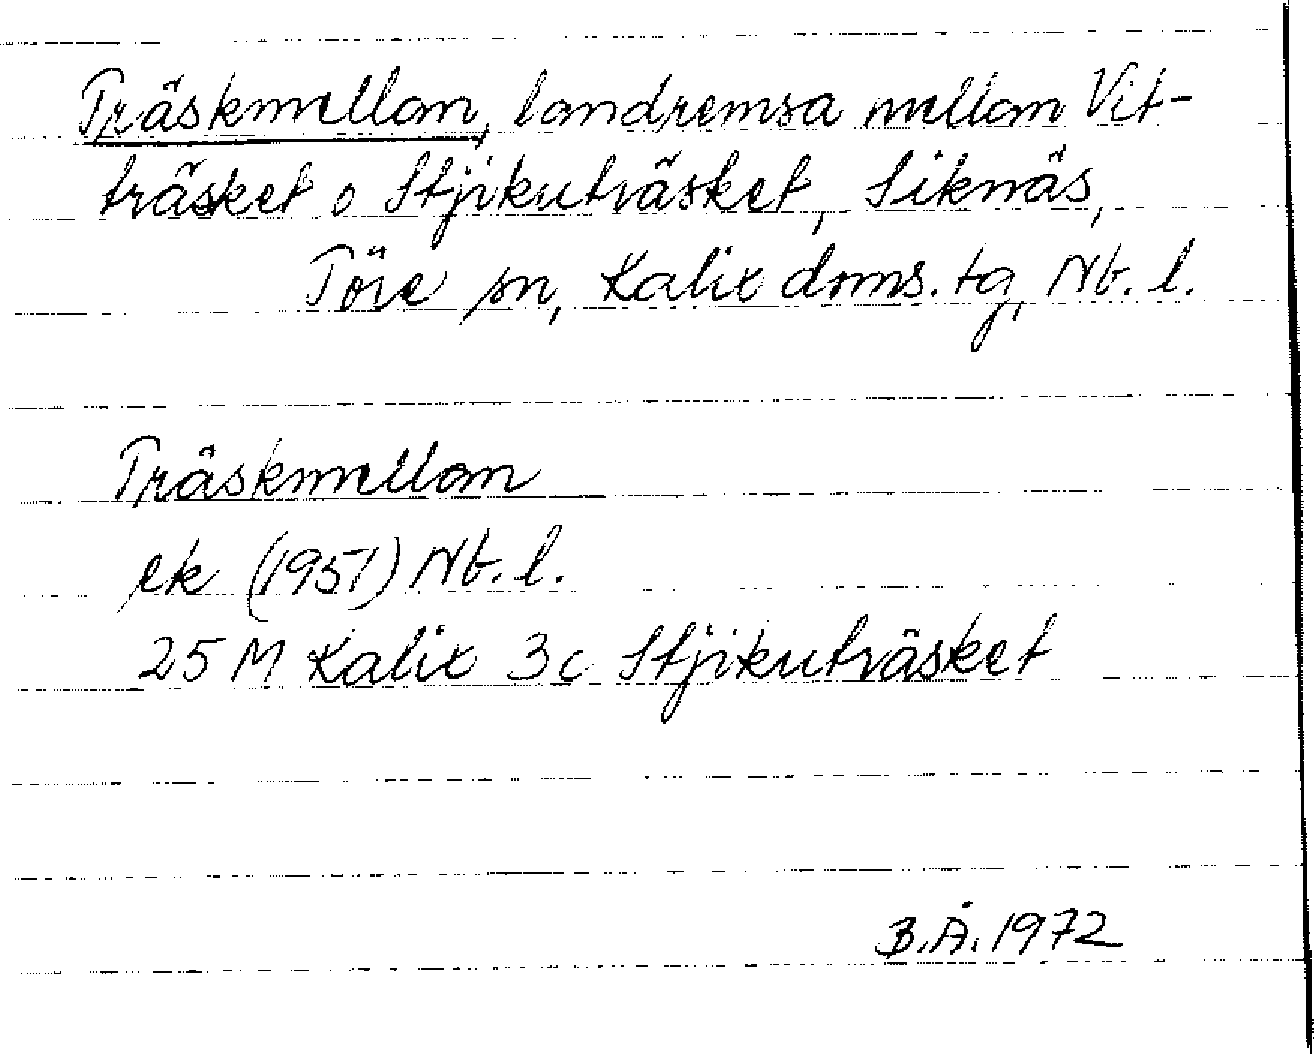 Träskmellan, landremsa mellan Vit-
träsket o Stjikuträsket, Siknäs,
Töre sn, Kalix doms. tg, Nb. l.
Träskmellan
ek (1951) Nb. l.
25 M Kalix 3c Stjikuträsket
B.Å. 1972